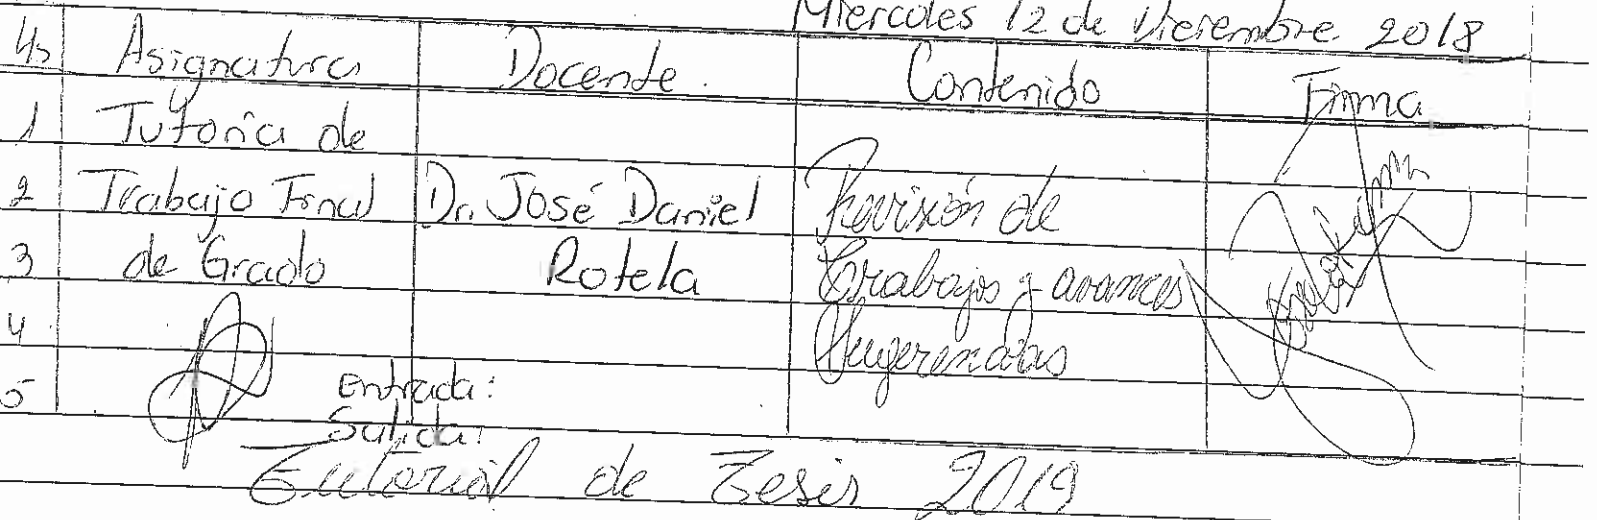 Miercoles 12 de Diciembre 2018
Hs Asignatura Docente. Contenido Firma
1 Tutoria de
2 Trabajo Final Dr. José Daniel Revisión de
3 de Grado Rotela trabajos y avances
4 Sugerencias
5 Entrada:
Salida:
Tutorial de Tesis 2019